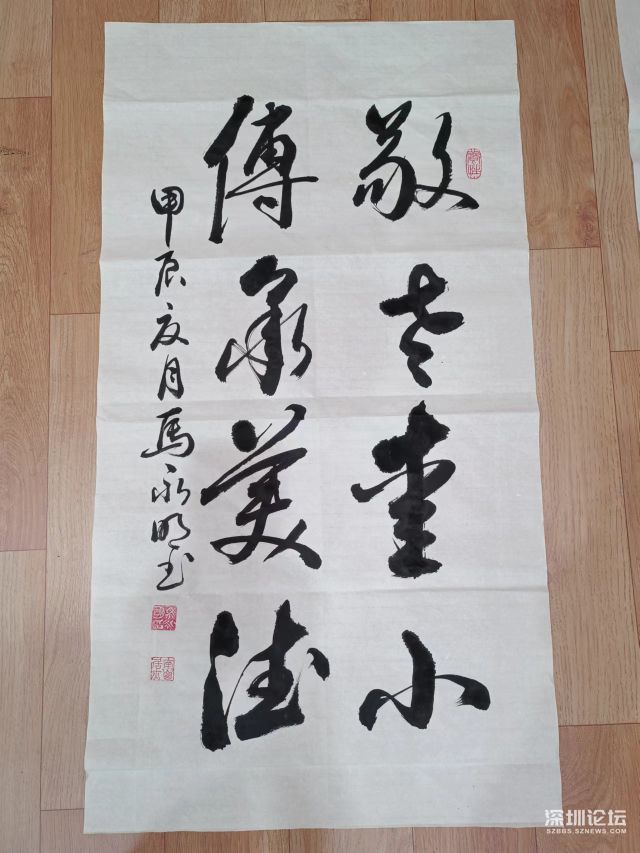 敬老重小
傳承美德
甲辰夏月馬永明書
深圳论坛
SZBBS.SZNEWS.COM